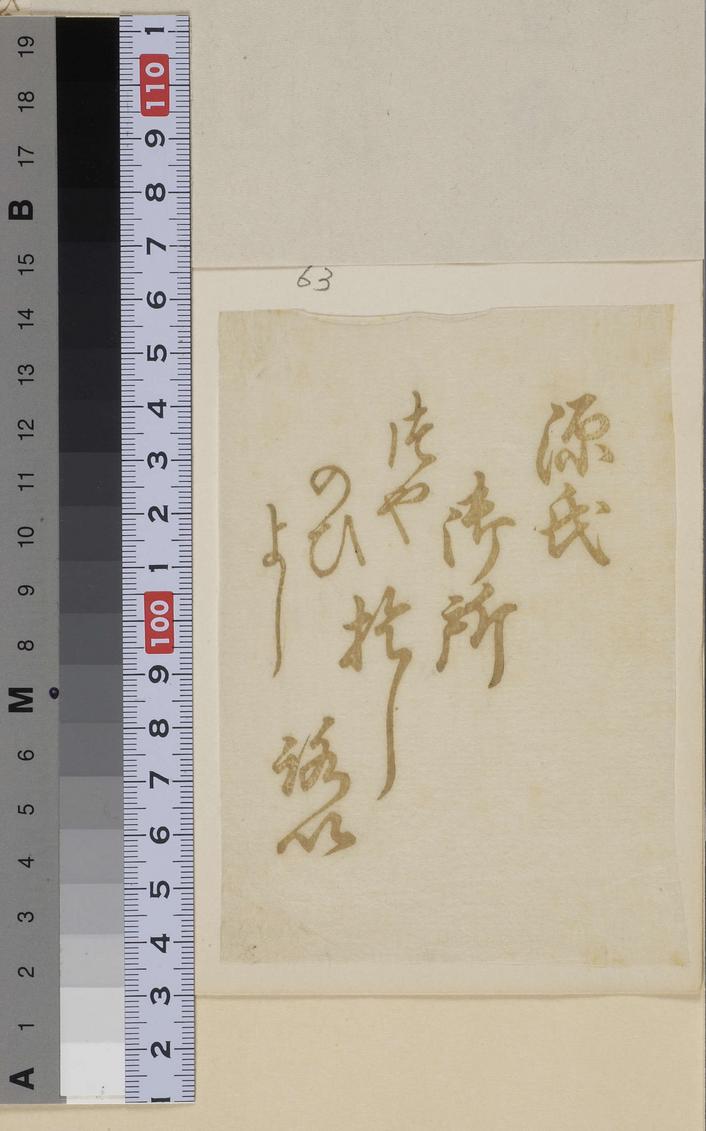 63
源氏
御所
徒や
於し
路以
のひ
よし
19 18 17 B 15 14 13 12 11 10 9 8 M 6 5 4 3 2 1 A
1 110 9 8 7 6 5 4 3 2 1 100 9 8 7 6 5 4 3 2 1